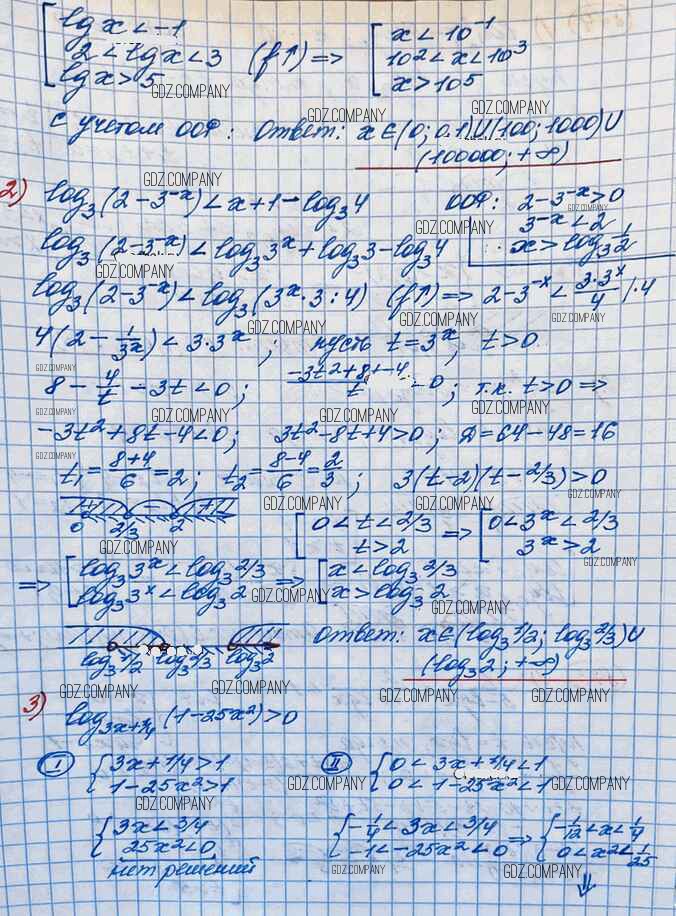 lg x < -1
2 < lg x < 3 (f↑) =>
lg x > 5
x < 10^-1
10^2 < x < 10^3
x > 10^5
GDZ.COMPANY
GDZ.COMPANY
GDZ.COMPANY
с учетом ООФ: Ответ: x ∈ (0; 0.1) U (100; 1000) U
(100000; +∞)
GDZ.COMPANY
2) log₃(2 - 3^-x) < x + 1 - log₃4 ООФ: 2 - 3^-x > 0
GDZ.COMPANY
3^-x < 2
GDZ.COMPANY
log₃(2 - 3^-x) < log₃3^x + log₃3 - log₃4 x > log₃ 1/2
GDZ.COMPANY
GDZ.COMPANY
log₃(2 - 3^-x) < log₃(3^x · 3 : 4) (f↑) => 2 - 3^-x < 3·3^x/4 | · 4
GDZ.COMPANY
GDZ.COMPANY
4(2 - 1/3^x) < 3·3^x; пусть t = 3^x, t > 0
GDZ.COMPANY
GDZ.COMPANY
8 - 4/t - 3t < 0; (-3t² + 8t - 4)/t < 0; т.к. t > 0 =>
GDZ.COMPANY
GDZ.COMPANY
GDZ.COMPANY
GDZ.COMPANY
-3t² + 8t - 4 < 0; 3t² - 8t + 4 > 0; Д = 64 - 48 = 16
GDZ.COMPANY
t₁ = (8+4)/6 = 2; t₂ = (8-4)/6 = 2/3; 3(t - 2)(t - 2/3) > 0
GDZ.COMPANY
GDZ.COMPANY
+ - +
0 2/3 2
0 < t < 2/3
t > 2
=>
0 < 3^x < 2/3
3^x > 2
GDZ.COMPANY
GDZ.COMPANY
=> log₃3^x < log₃2/3
log₃3^x < log₃2
=>
x < log₃2/3
x > log₃2
GDZ.COMPANY
GDZ.COMPANY
log₃1/2 log₃2/3 log₃2
Ответ: x ∈ (log₃1/2; log₃2/3) U
(log₃2; +∞)
GDZ.COMPANY
GDZ.COMPANY
GDZ.COMPANY
GDZ.COMPANY
3) log_3x+1/4 (1 - 25x²) > 0
I
3x + 1/4 > 1
1 - 25x² > 1
II
0 < 3x + 1/4 < 1
0 < 1 - 25x² < 1
GDZ.COMPANY
GDZ.COMPANY
GDZ.COMPANY
3x < 3/4
25x² < 0
нет решений
-1/4 < 3x < 3/4
-1 < -25x² < 0
=>
-1/12 < x < 1/4
0 < x² < 1/25
GDZ.COMPANY
GDZ.COMPANY
⇓